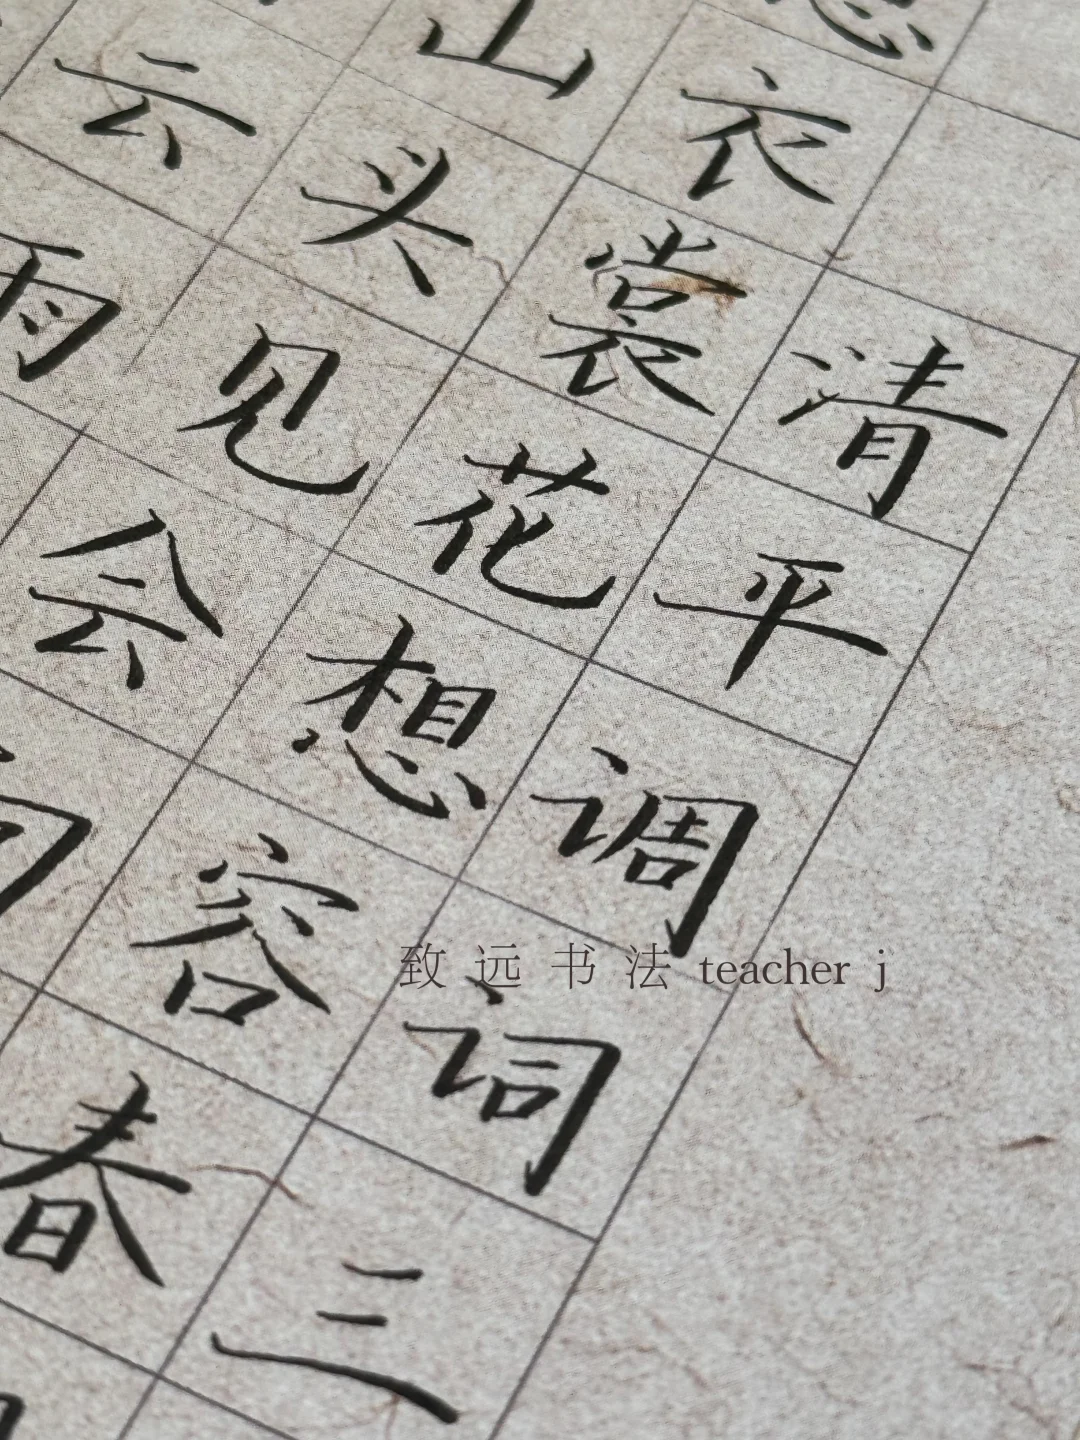 清平调词三
想衣裳花想容春
山头见会向
云雨
致远书法 teacher j